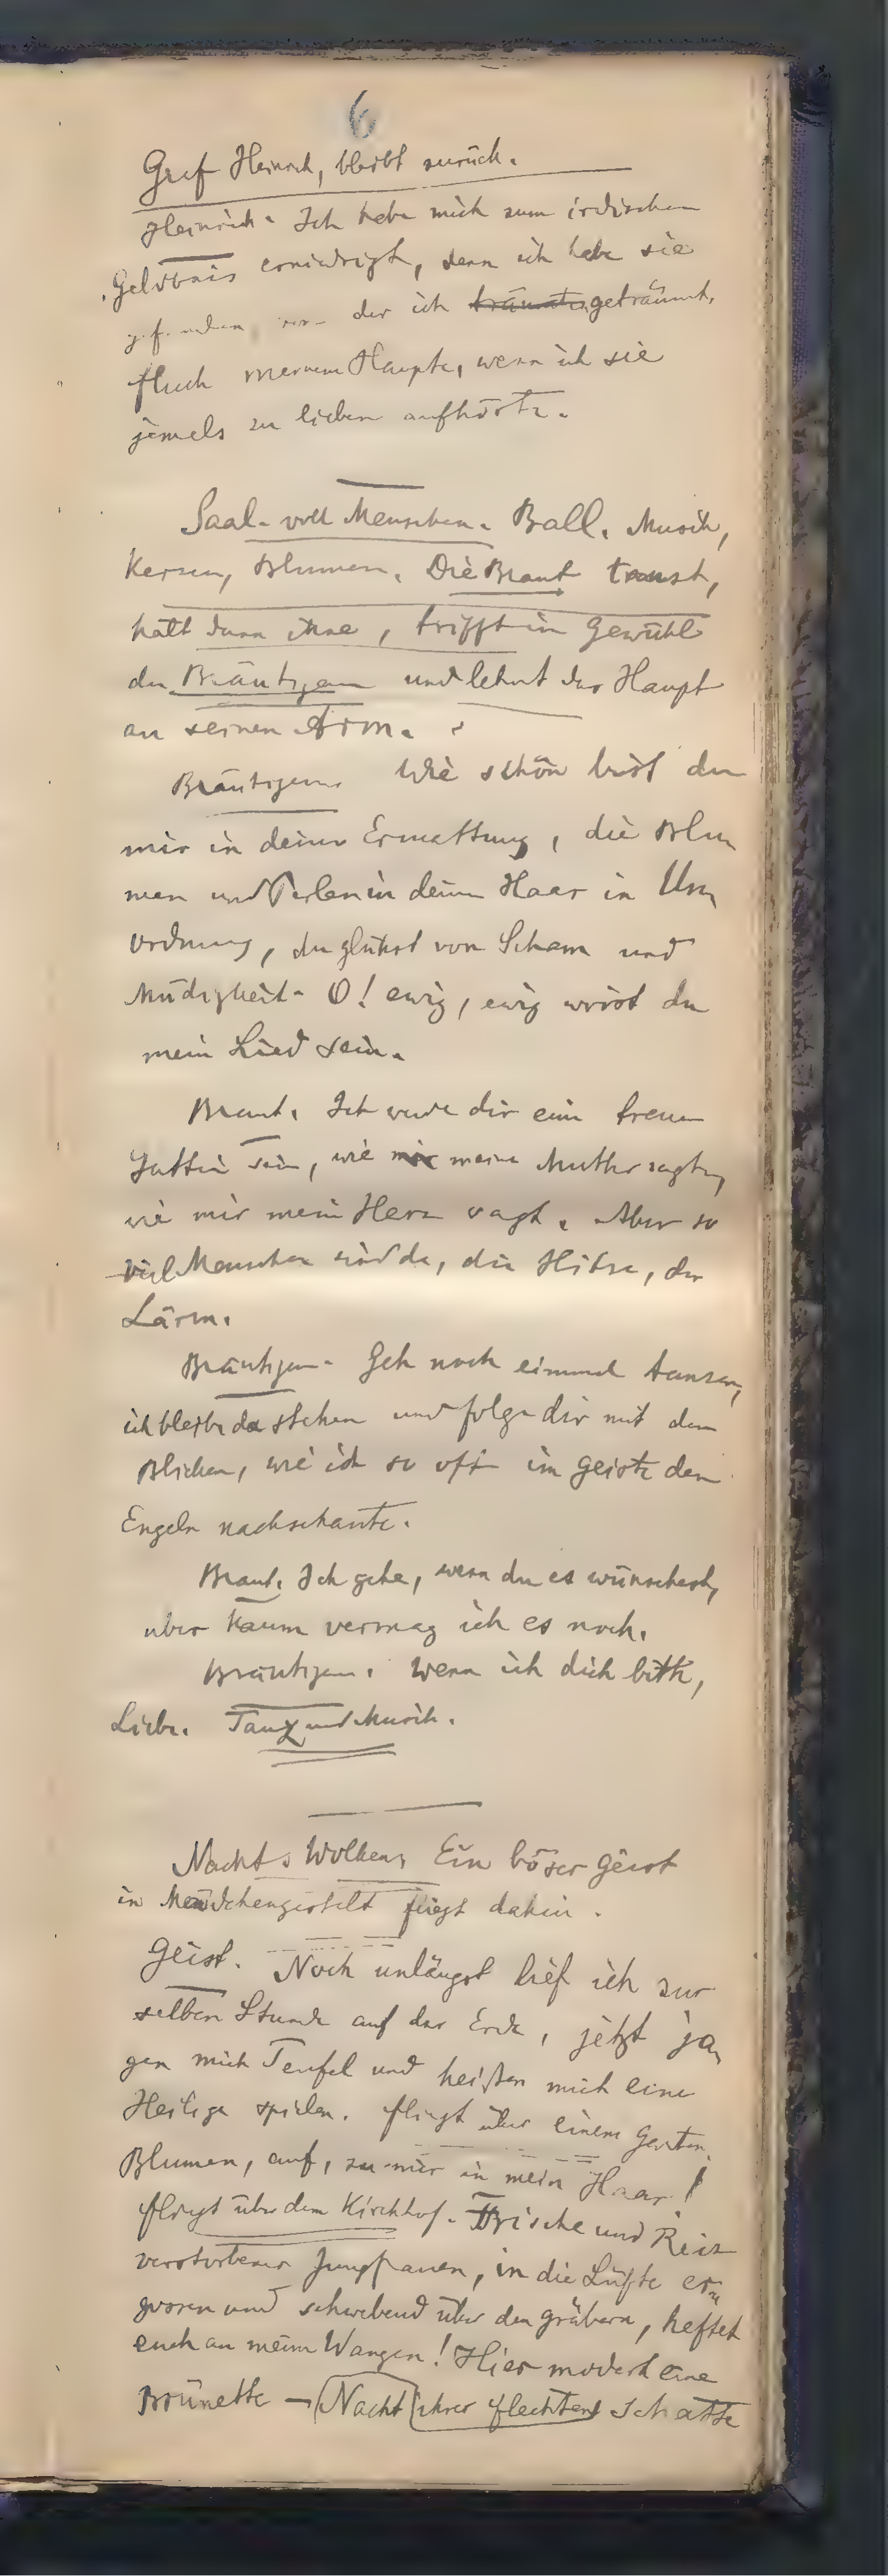 6
Graf Heinrich, bleibt zurück.
Heinrich. Ich habe mich zum irdischen
Gelöbnis erniedrigt, denn ich habe sie
gefunden, von der ich träumte geträumt,
Fluch meinem Haupte, wenn ich sie
jemals zu lieben aufhörte.
Saal voll Menschen. Ball. Musik,
Kerzen, Blumen. Die Braut tanzt,
hält dann inne, trifft im Gewühl
den Bräutigam und lehnt das Haupt
an seinen Arm.
Bräutigam. Wie schön bist du
mir in deiner Ermattung, die Blu-
men und Perlen in deinem Haar in Un-
ordnung, du glühst von Scham und
Müdigkeit. O! ewig, ewig wirst du
mein Lied sein.
Braut. Ich werde dir eine treue
Gattin sein, wie mir meine Mutter sagte,
wie mir mein Herz sagt. Aber so
viel Menschen sind da, die Hitze, der
Lärm.
Bräutigam. Geh noch einmal tanzen,
ich bleibe da stehen und folge dir mit den
Blicken, wie ich so oft im Geiste den
Engeln nachschaute.
Braut. Ich gehe, wenn du es wünschest,
aber kaum vermag ich es noch.
Bräutigam. Wenn ich dich bitte,
Liebe. Tanz und Musik.
Nacht. Wolken. Ein böser Geist
in Menschengestalt fliegt dahin.
Geist. Noch unlängst lief ich zur
selben Stunde auf der Erde, jetzt ja-
gen mich Teufel und heißen mich eine
Heilige spielen. fliegt über einem Garten.
Blumen, auf, zu mir in mein Haar!
fliegt über dem Kirchhof. Frische und Reiz
verstorbener Jungfrauen, in die Lüfte er-
gossen und schwebend über den Gräbern, heftet
euch an meine Wangen! Hier modert eine
Brünette – Nacht ihrer Flechten Schatte